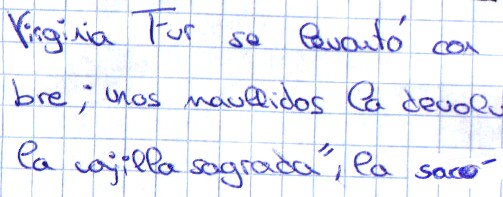 Virginia Fur se levantó con
bre; unos maullidos la devolv
la vajilla sagrada", la sacó